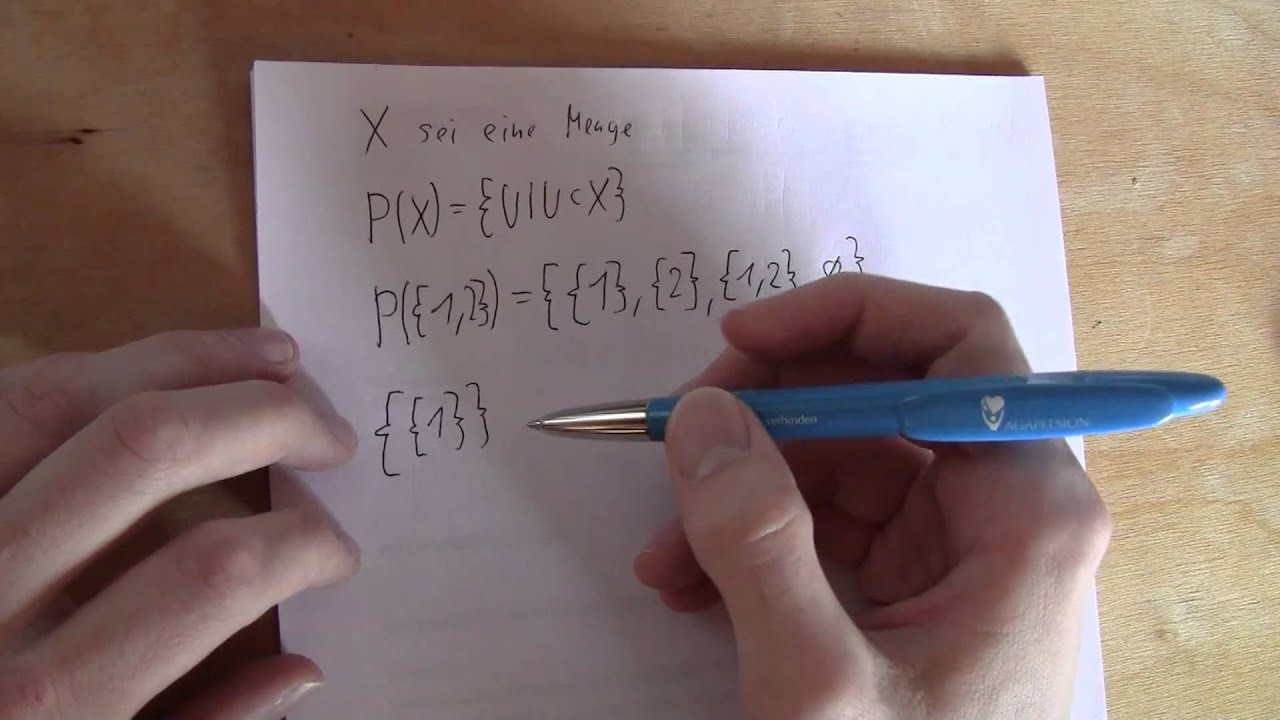 X sei eine Menge
P(X) = {U | U ⊂ X}
P({1,2}) = {{1}, {2}, {1,2}, ∅}
{{1}}
verbinden
AGAPLESION